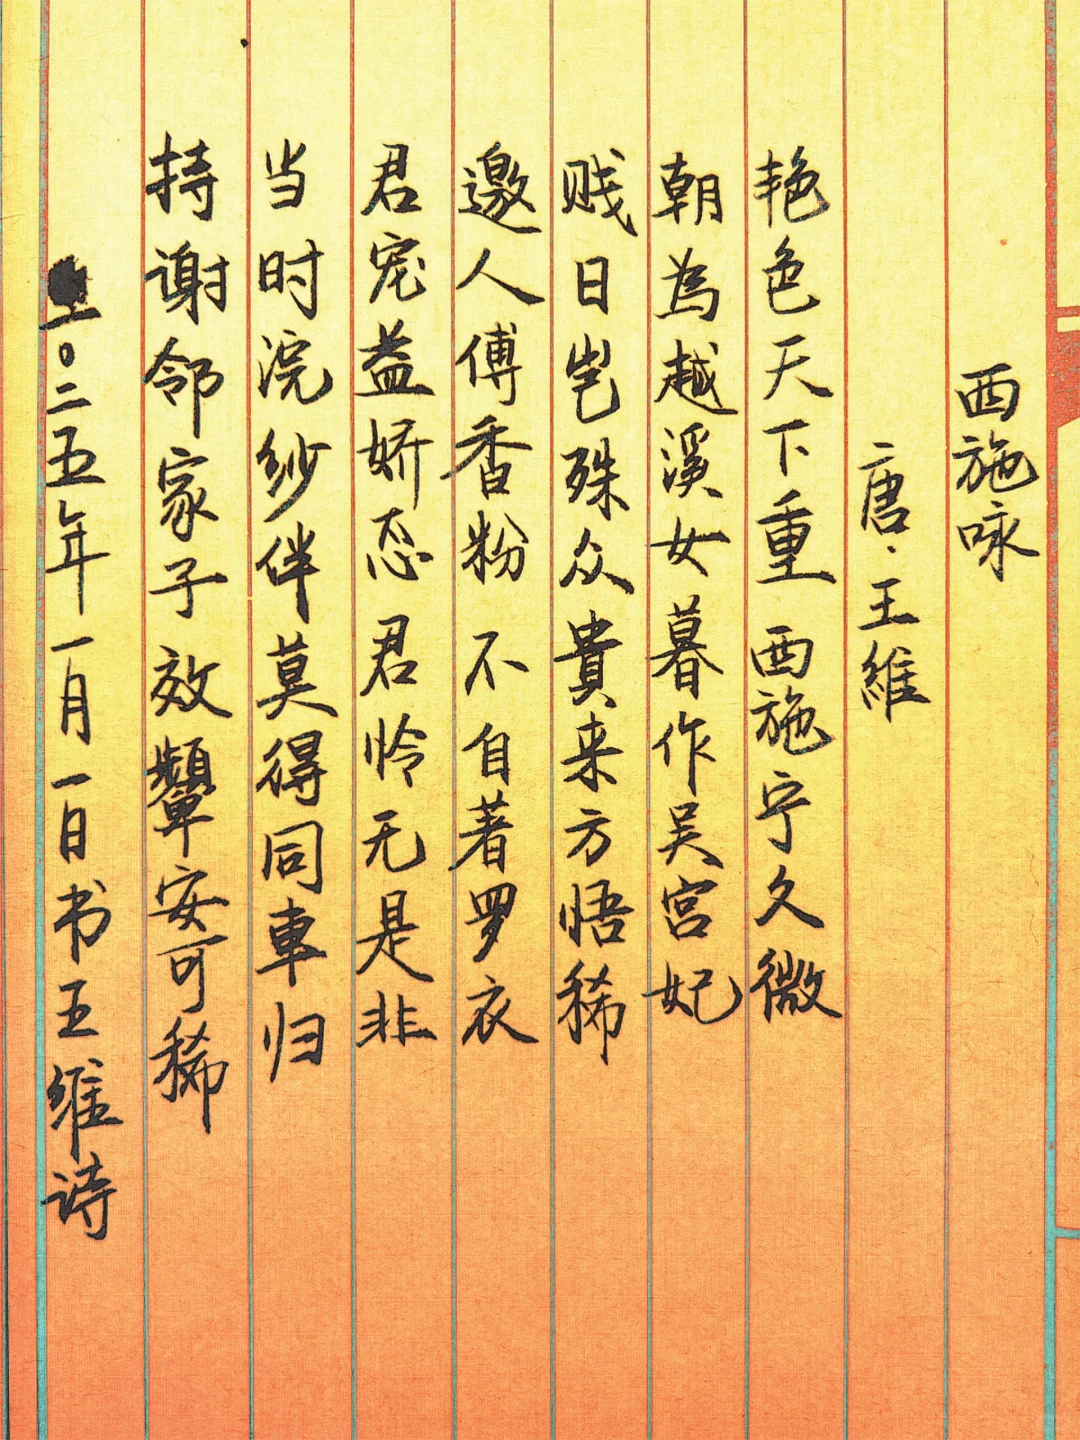 西施咏
唐·王維
艳色天下重西施宁久微
朝為越溪女暮作吴宫妃
贱日岂殊众貴来方悟稀
邀人傅香粉不自著罗衣
君宠益娇态君怜无是非
当时浣纱伴莫得同車归
持谢邻家子效颦安可稀
二〇二五年一月一日书王维诗